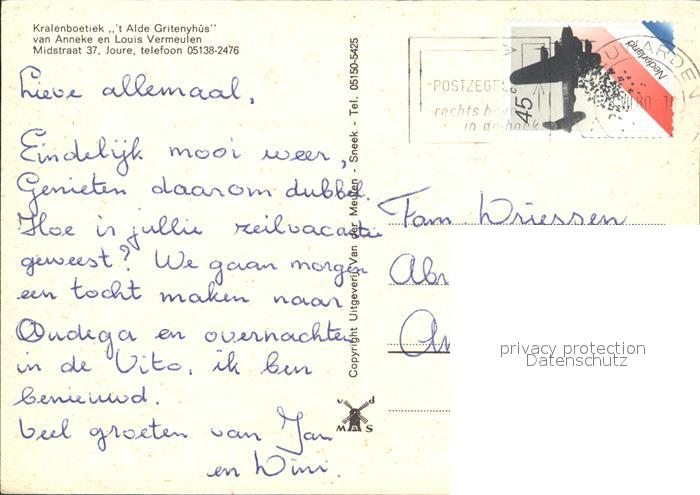 Kralenboetiek ,,'t Alde Gritenyhûs"
van Anneke en Louis Vermeulen
Midstraat 37, Joure, telefoon 05138-2476
Lieve allemaal,
Eindelijk mooi weer,
Genieten daarom dubbel.
Hoe is jullie zeilvacantie
geweest? We gaan morgen
een tocht maken naar
Oudega en overnachten
in de Vito, ik ben
benieuwd.
Veel groeten van Jan
en Wini.
Copyright Uitgeverij Van der Meulen - Sneek - Tel. 05150-5425
v d
M S
POSTZEGE
rechts bov
in de hoek
45 c
Nederland
WARDEN
80
Fam. Driessen
Ab
privacy protection
Datenschutz